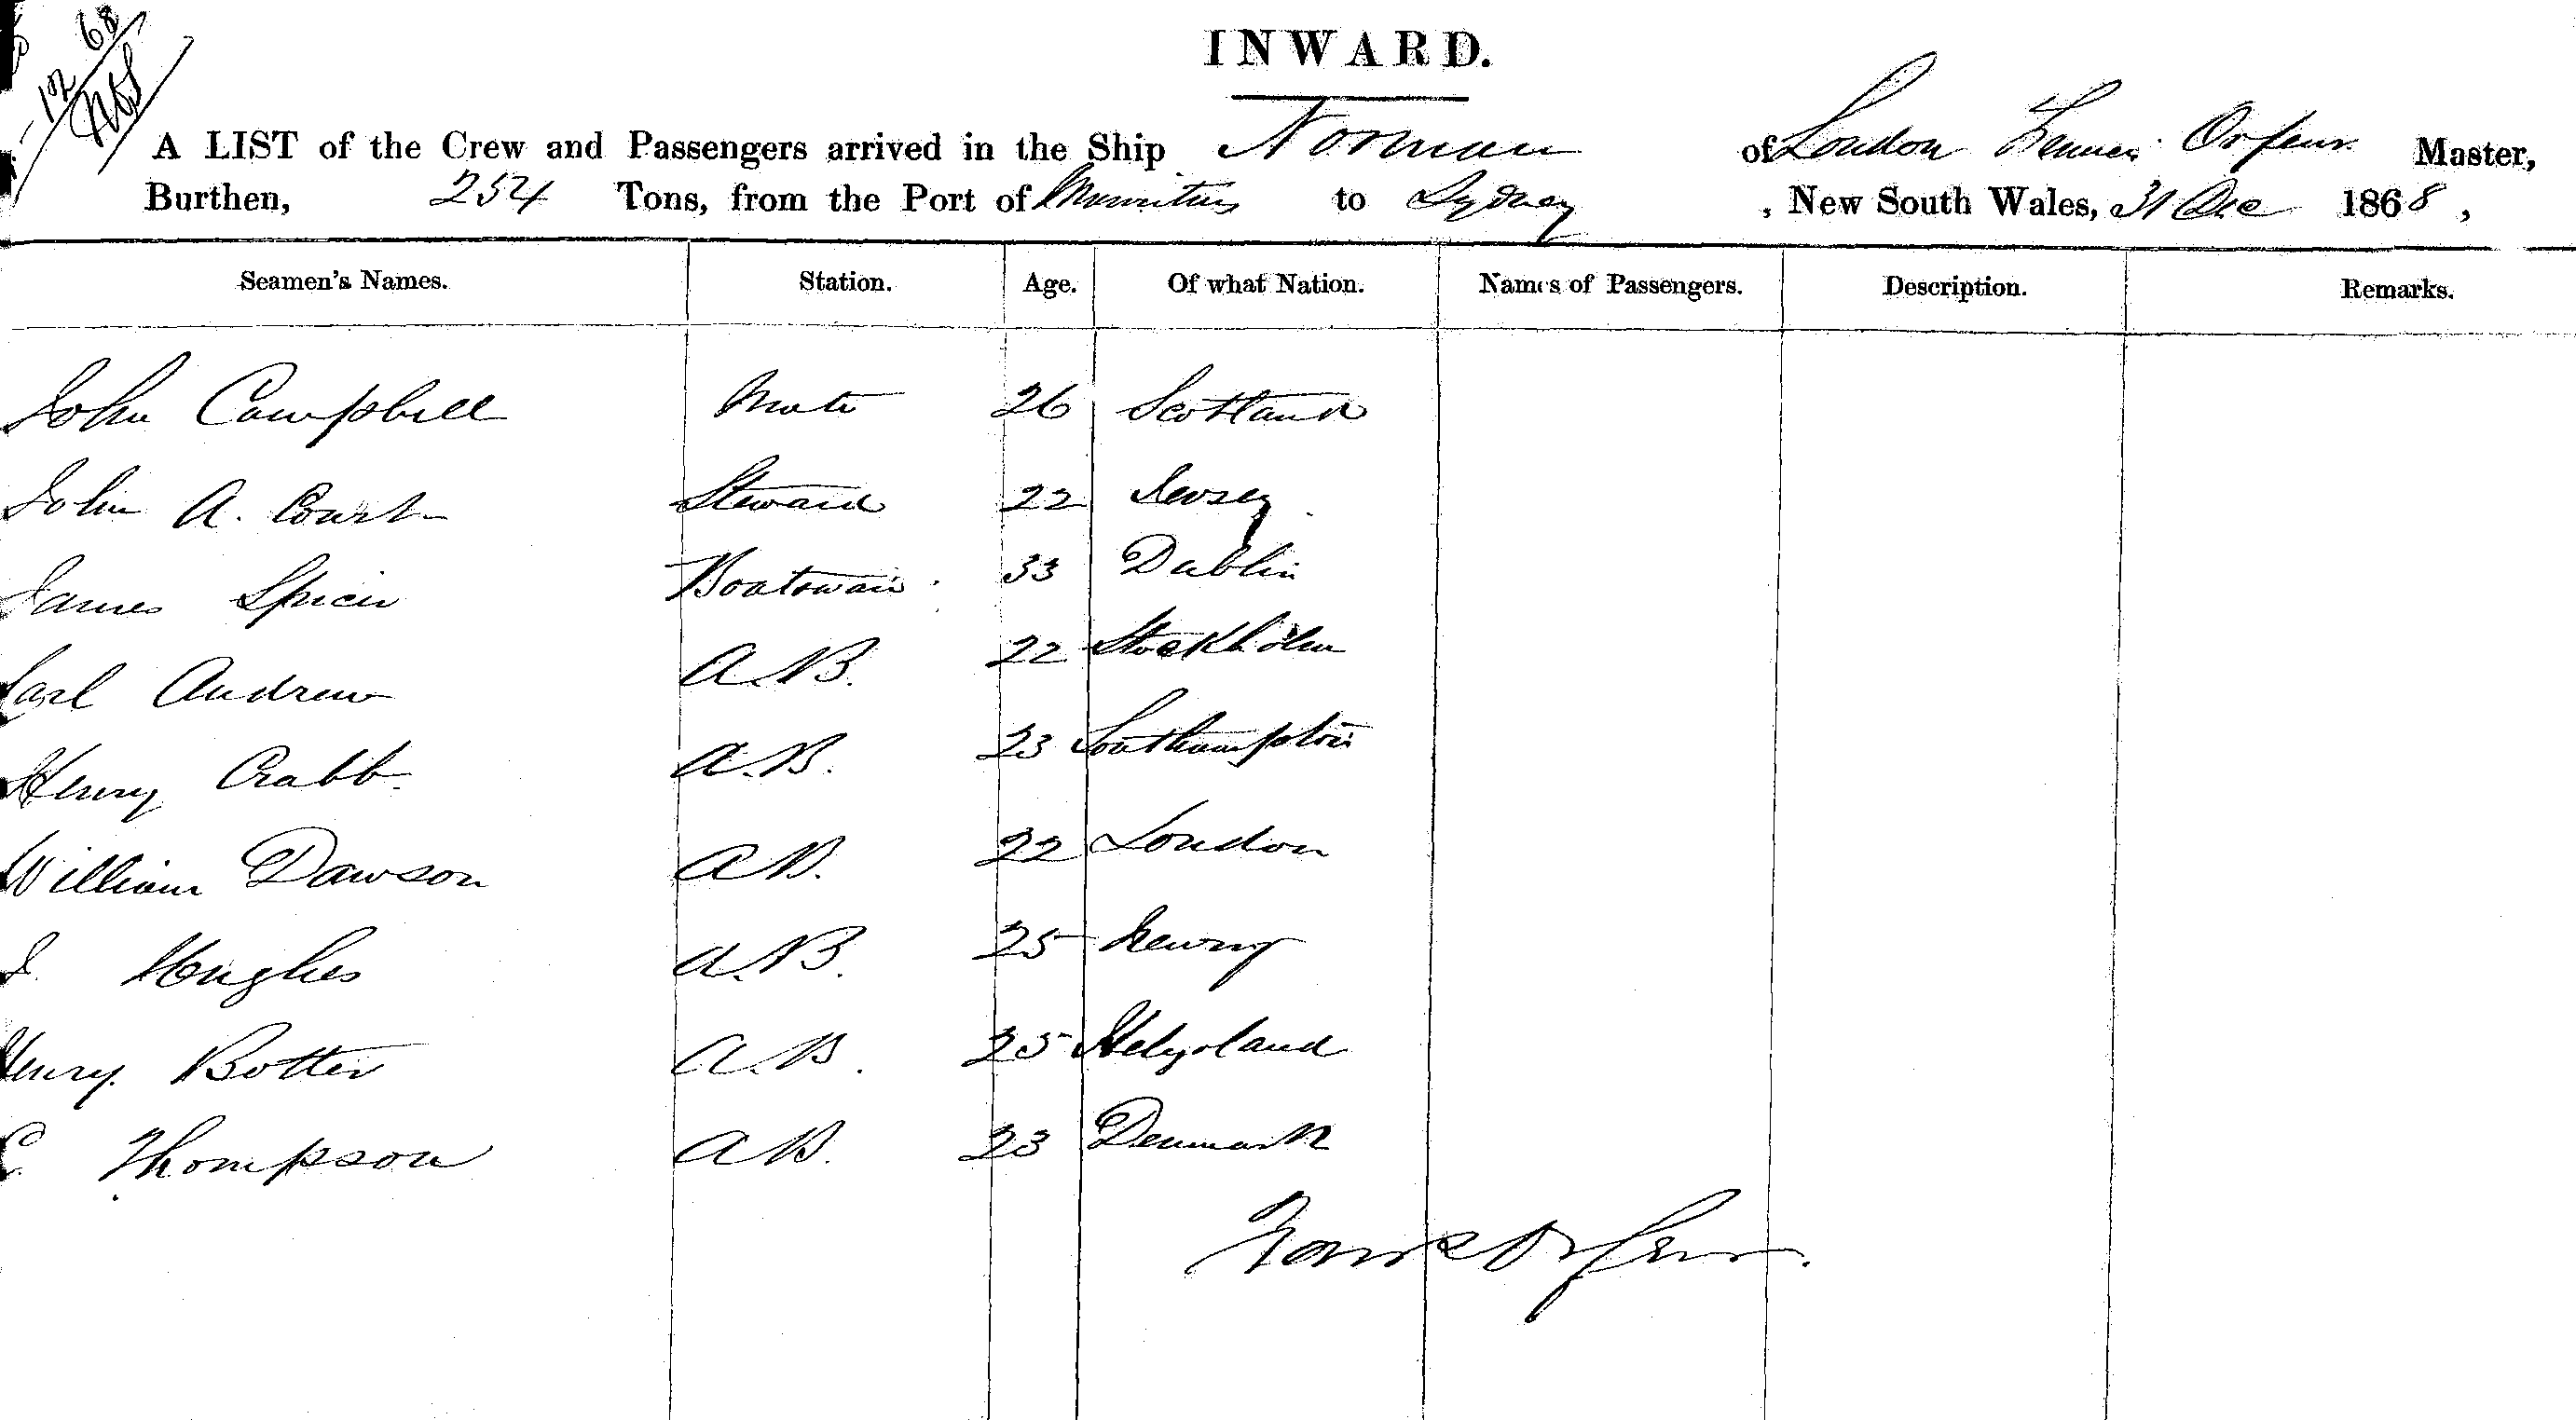 12 68
INWARD.
A LIST of the Crew and Passengers arrived in the Ship Norman of London Orfeur Master,
Burthen, 254 Tons, from the Port of Mauritius to Sydney, New South Wales, 31 Dec 1868,
Seamen's Names. Station. Age. Of what Nation. Names of Passengers. Description. Remarks.
John Campbell Mate 26 Scotland
John A. Court Steward 22 Jersey
James Spicer Boatswain 33 Dublin
Carl Andrew A.B. 22 Stockholm
Henry Crabb A.B. 23 Southampton
William Dawson A.B. 22 London
J. Hughes A.B. 25 Newry
Henry Botter A.B. 25 Helgoland
C Thompson A.B. 23 Denmark
Orfeur